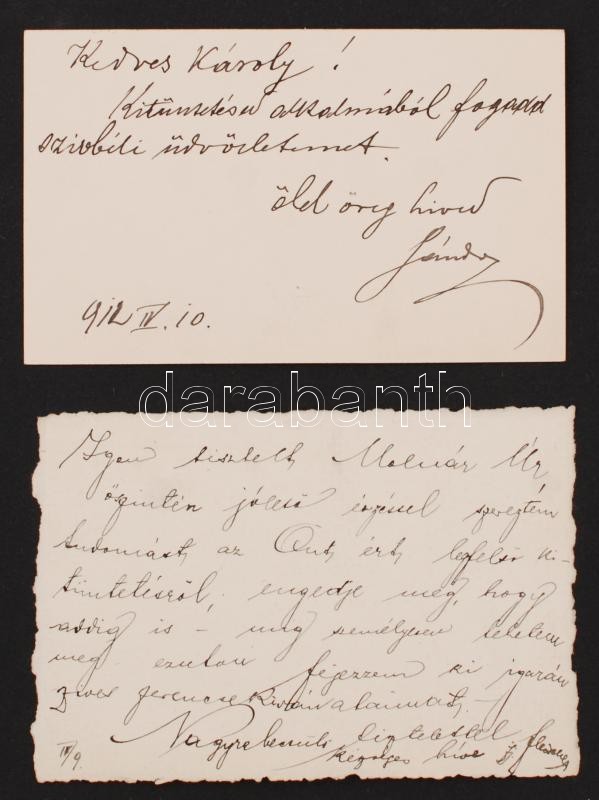 Kedves Károly!
Kitüntetésed alkalmából fogadd
szivbéli üdvözletemet.
öreg hived
Sándor
912 IV. 10.
darabanth
Igen tisztelt Molnár Úr,
őszintén jóleső érzéssel szereztem
tudomást az Önt ért legfelső ki-
tüntetésről, engedje meg, hogy
addig is - mig személyesen tehetem
meg - ezuton fejezzem ki igazán
szives szerencsekivánataimat. -
Nagyrabecsülő tisztelettel
készséges hive
IV/9.